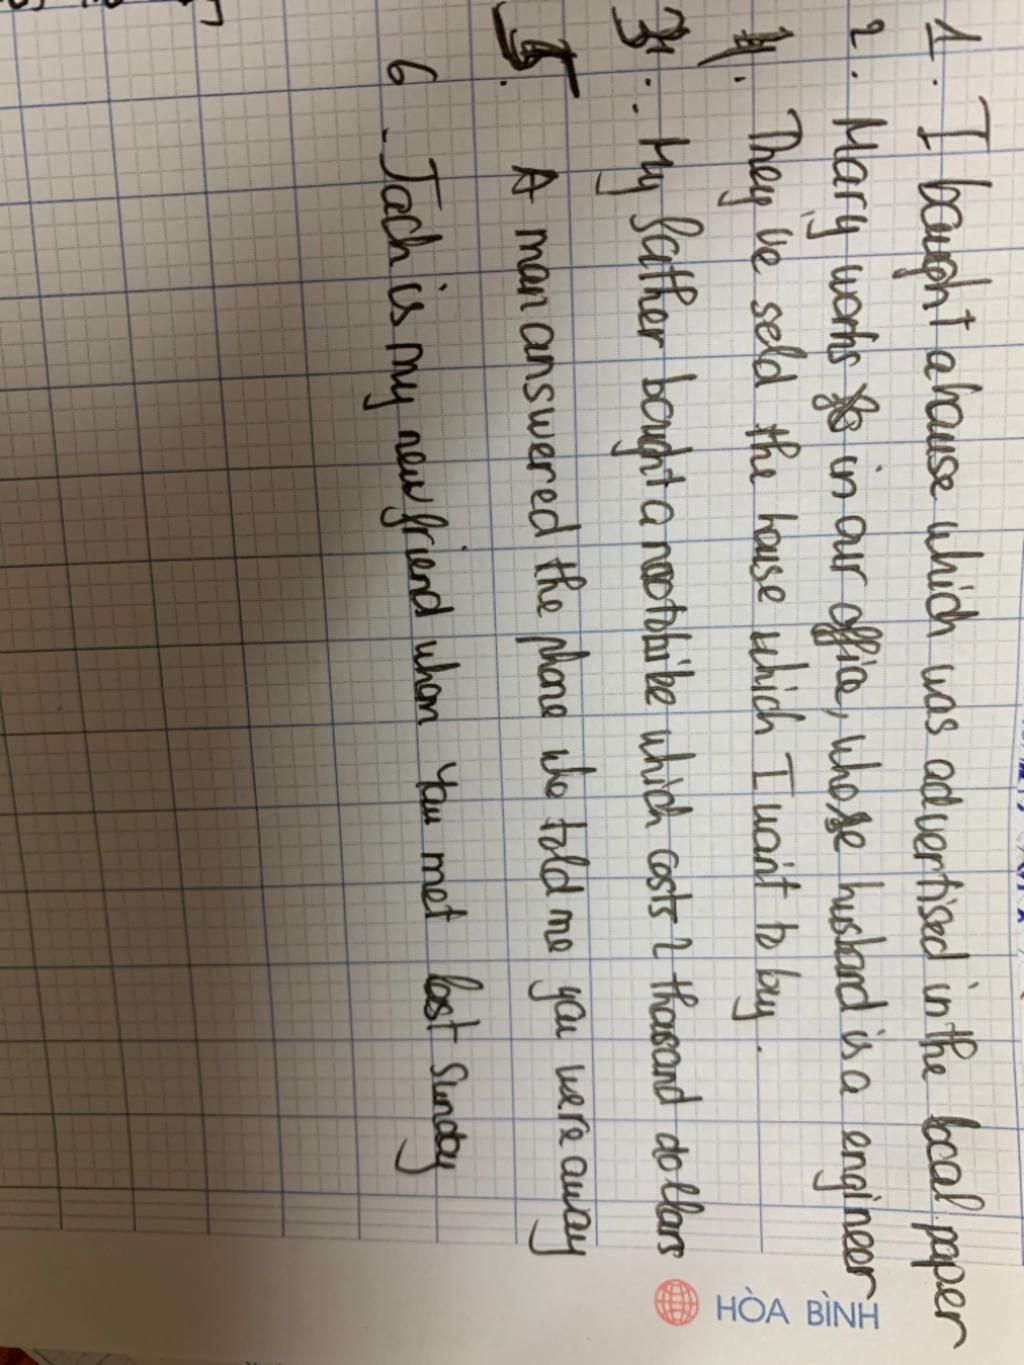 1. I bought a house which was advertised in the local paper
2. Mary works in our office, whose husband is a engineer
4. They've sold the house which I want to buy.
3. My father bought a motobike which costs 2 thousand dollars
5. A man answered the phone who told me you were away
6. Jach is my new friend whom you met last Sunday
HÒA BÌNH